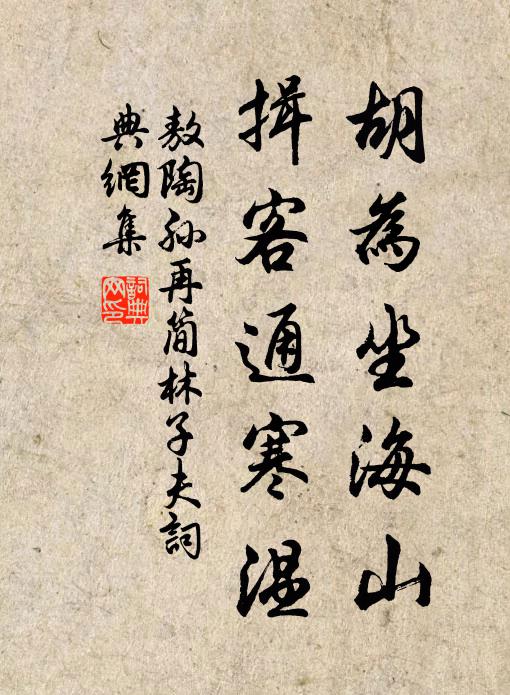 胡為坐海山
揖客通寒温
敖陶孙再简林子夫詞
典網集
詞典网印